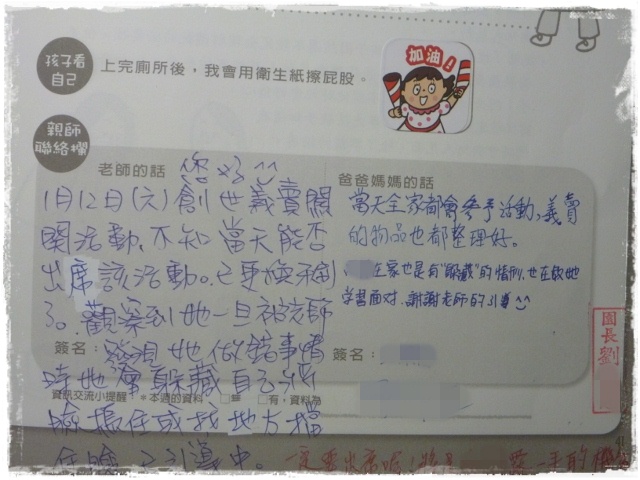 孩子看
自己
上完廁所後，我會用衛生紙擦屁股。
加油！
親師
聯絡欄
老師的話 您好
1月12日(六)創世義賣照
關活動，不知當天能否
出席該活動。已更換稱
了。觀察到她一旦被老師
簽名：發現她做錯事情
時她會躲藏自己，將
臉摀住或找地方擋
住臉，已引導中。
爸爸媽媽的話
當天全家都會參予活動，義賣
的物品也都整理好。
在家也是有"躲藏"的情形，也在啟她
学習面对，謝謝老師的引導
簽名：
園長劉
資訊交流小提醒 ＊本週的資料 □無 □有，資料為
一定要出席喔！